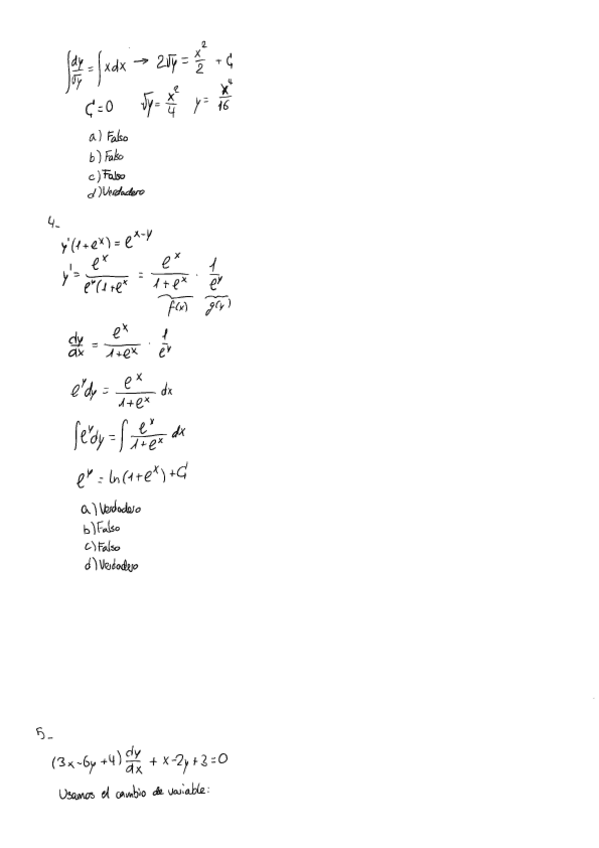 ∫dy/√y = ∫x dx → 2√y = x²/2 + C₁
C₁=0 √y = x²/4 y = x⁴/16
a) Falso
b) Falso
c) Falso
d) Verdadero
4_
y'(1+eˣ) = eˣ⁻ʸ
y' = eˣ/(eʸ(1+eˣ = eˣ/(1+eˣ) · 1/eʸ
f(x) g(y)
dy/dx = eˣ/(1+eˣ) · 1/eʸ
eʸdy = eˣ/(1+eˣ) dx
∫eʸdy = ∫ eˣ/(1+eˣ) dx
eʸ = ln(1+eˣ)+C₁
a) Verdadero
b) Falso
c) Falso
d) Verdadero
5_
(3x-6y+4) dy/dx + x-2y+3=0
Usamos el cambio de variable: